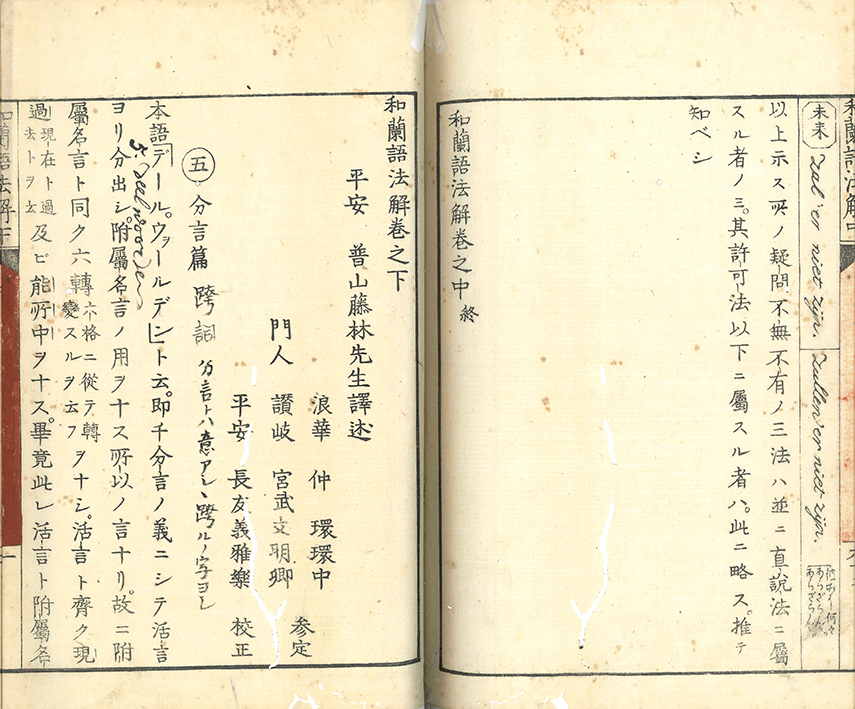 和蘭語法解中
未来
zal 'er niet zijn.
zullen 'er niet zijn.
以上示ス所ノ疑問不無不有ノ三法ハ並ニ直説法ニ屬
スル者ノミ。其許可法以下ニ屬スル者ハ。此ニ略ス。推テ
知ベシ
和蘭語法解卷之中 終
和蘭語法解卷之下
平安 普山藤林先生譯述
浪華 仲 環環中
門人 讃岐 宮武文明卿 参定
平安 長友義雅樂 校正
五 分言篇 跨詞 分言トハ意アシヽ跨ルノ字ヨシ
本語「デール。ウォールデン」ト云。即チ分言ノ義ニシテ活言
ヨリ分出シ。附屬名言ノ用ヲナス所以ノ言ナリ。故ニ附
屬名言ト同ク六轉 六格ニ從テ轉變スルヲ云フ ヲナシ。活言ト齊ク現
過 現在ト過去トヲ云 及ビ能所中ヲナス。畢竟此レ活言ト附屬名
和蘭語法解下